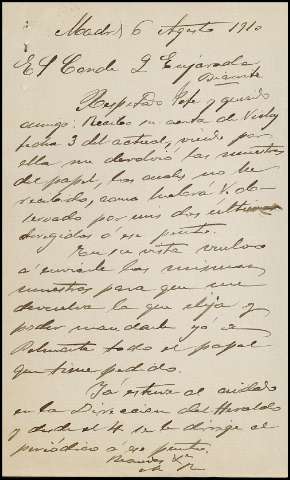 Madrid 6 Agosto 1910
El Conde D
Biarritz
Respetado Jefe y querido
amigo: Recibo su carta de Vichy
fecha 3 del actual, viendo por
ella me devolvió las muestras
de papel, las cuales no he
recibido, como habrá V. ob-
servado por mis dos últimas
dirigidas á ese punto.
En su vista vuelvo
á enviarle las mismas
muestras para que me
devuelva la que elija y
poder mandarle yó á
todo el papel
que tiene pedido.
Yá estuve al cuidado
en la Dirección del Heraldo
y desde el 4 se le dirige el
periódico á ese punto.